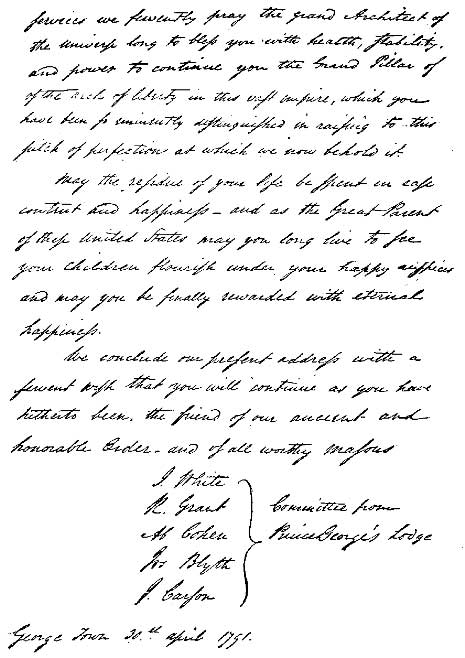 services we fervently pray the grand Architect of
the Universe long to bless you with health, stability,
and power to continue you the Grand Pillar of
of the arch of liberty in this vast empire, which you
have been so eminently distinguished in raising to this
pitch of perfection at which we now behold it.
May the residue of your life be spent in ease
content and happiness - and as the Great Parent
of these United States may you long live to see
your Children flourish under your happy auspices
and may you be finally rewarded with eternal
happiness.
We conclude our present address with a
fervent wish that you will continue as you have
hitherto been, the friend of our ancient and
honorable Order - and of all worthy Masons
J. White
R. Grant
Ab Cohen
Jos Blyth
J. Carson
Committee from
Prince George's Lodge
George Town 30.th april 1791.